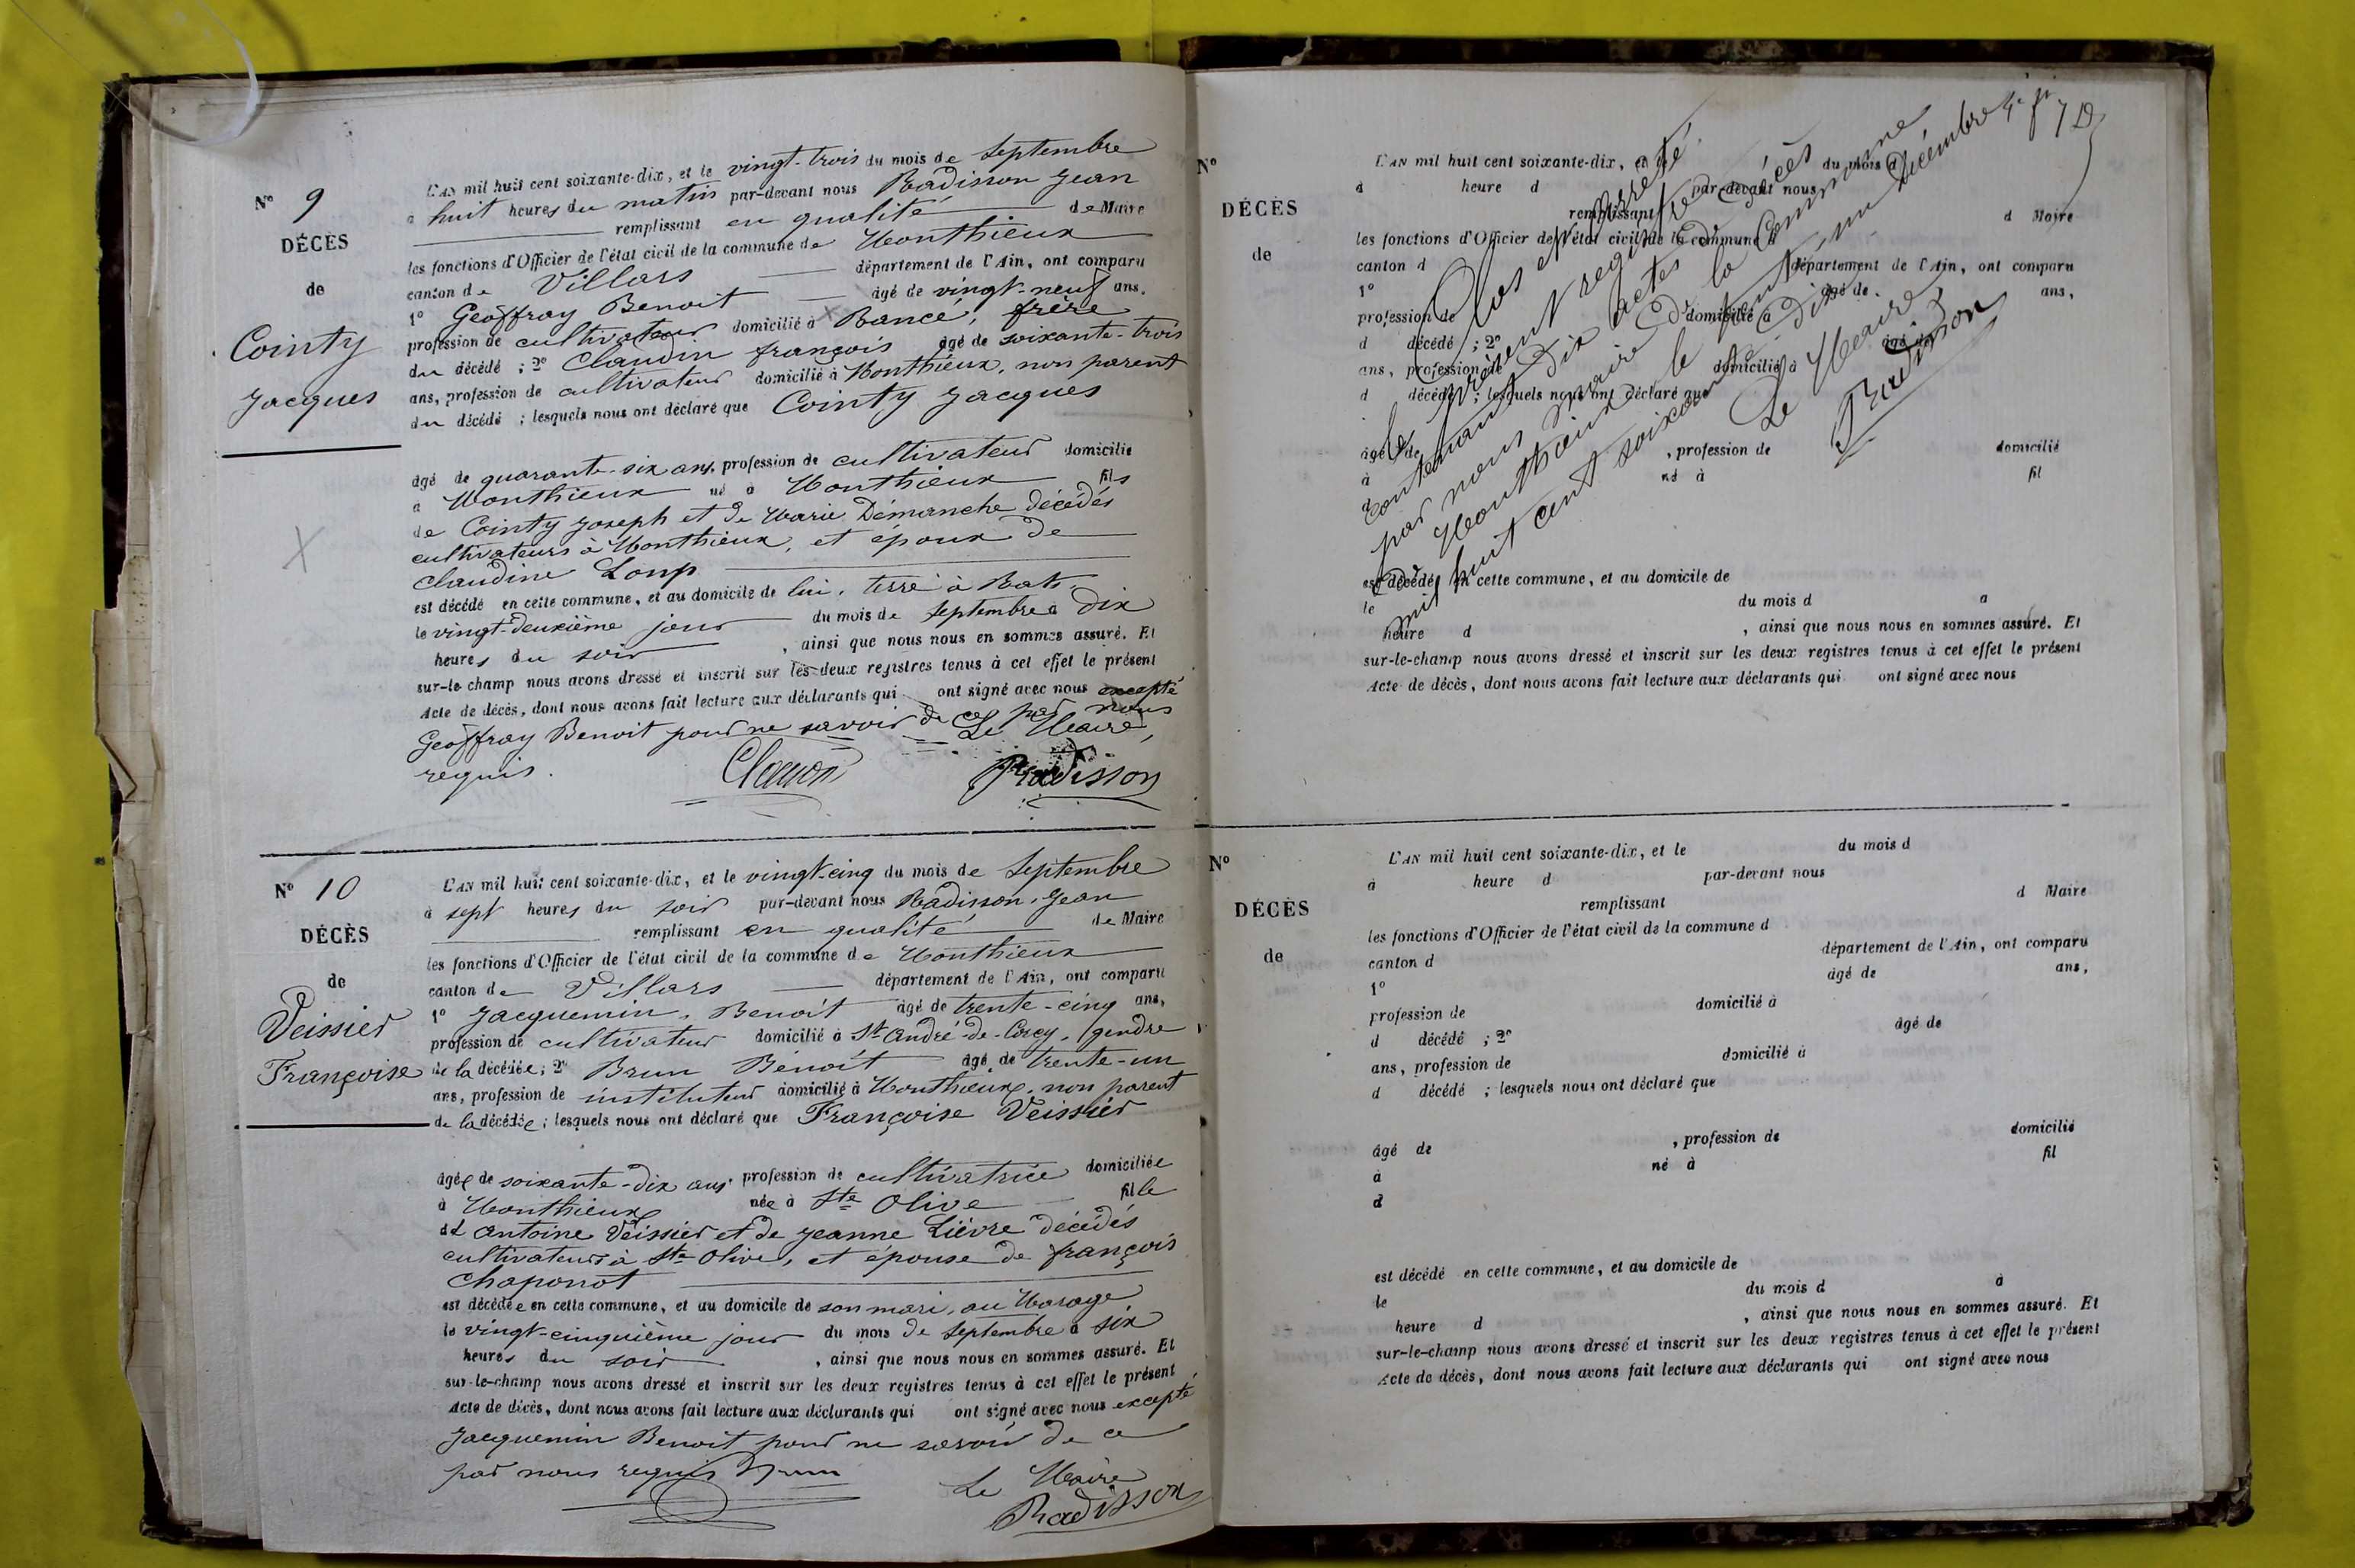 N° 9
DÉCÈS
de
Cointy
Jacques
L'AN mil huit cent soixante-dix, et le vingt-trois du mois de Septembre
à huit heures du matin par-devant nous Radisson Jean
remplissant en qualité de Maire
les fonctions d'Officier de l'état civil de la commune de Monthieux
canton de Villars département de l'Ain, ont comparu
1° Geoffray Benoit âgé de vingt-neuf ans,
profession de cultivateur domicilié à Rancé, frère
du décédé ; 2° Claudin françois âgé de soixante-trois
ans, profession de cultivateur domicilié à Monthieux, non parent
du décédé ; lesquels nous ont déclaré que Cointy Jacques
âgé de quarante-six ans, profession de cultivateur domicilié
à Monthieux né à Monthieux fils
de Cointy Joseph et de Marie Démanche décédés
cultivateurs à Monthieux, et époux de
Claudine Loup
est décédé en cette commune, et au domicile de lui, terre à Bats
le vingt-deuxième jour du mois de Septembre à dix
heures du soir, ainsi que nous nous en sommes assuré. Et
sur-le-champ nous avons dressé et inscrit sur les deux registres tenus à cet effet le présent
Acte de décès, dont nous avons fait lecture aux déclarants qui ont signé avec nous excepté
Geoffray Benoit pour ne savoir de ce par nous
requis. Le Maire,
Radisson
N° 10
DÉCÈS
de
Veissier
Françoise
L'AN mil huit cent soixante-dix, et le vingt-cinq du mois de Septembre
à sept heures du soir par-devant nous Radisson, Jean
remplissant en qualité de Maire
les fonctions d'Officier de l'état civil de la commune de Monthieux
canton de Villars département de l'Ain, ont comparu
1° Jacquemin, Benoit âgé de trente-cinq ans,
profession de cultivateur domicilié à St André-de-Corcy, gendre
de la décédée ; 2° Brun Benoit âgé de trente-un
ans, profession de instituteur domicilié à Monthieux, non parent
de la décédée ; lesquels nous ont déclaré que Françoise Veissier
âgée de soixante-dix ans, profession de cultivatrice domiciliée
à Monthieux née à Ste Olive fille
de Antoine Veissier et de Jeanne Lièvre décédés
cultivateurs à Ste Olive, et épouse de françois
Chaponot
est décédée en cette commune, et au domicile de son mari, au Marage
le vingt-cinquième jour du mois de Septembre à six
heures du soir, ainsi que nous nous en sommes assuré. Et
sur-le-champ nous avons dressé et inscrit sur les deux registres tenus à cet effet le présent
Acte de décès, dont nous avons fait lecture aux déclarants qui ont signé avec nous excepté
Jacquemin Benoit pour ne savoir de ce
par nous requis Brun Le Maire
Radisson
N°
DÉCÈS
de
L'AN mil huit cent soixante-dix, et le du mois d
à heure d par-devant nous
remplissant d Maire
les fonctions d'Officier de l'état civil de la commune d
canton d département de l'Ain, ont comparu
1° âgé de ans,
profession de domicilié à
d décédé ; 2° âgé de
ans, profession de domicilié à
d décédé ; lesquels nous ont déclaré que
âgé de , profession de domicilié
à né à fil
d
est décédé en cette commune, et au domicile de
le du mois d à
heure d , ainsi que nous nous en sommes assuré. Et
sur-le-champ nous avons dressé et inscrit sur les deux registres tenus à cet effet le présent
Acte de décès, dont nous avons fait lecture aux déclarants qui ont signé avec nous
Clos et arrêté
le présent registre
contenant dix actes de décès
par nous Maire de la Commune
de Monthieux le trente-un Décembre
mil huit cent soixante-dix
Le Maire,
Radisson
N°
DÉCÈS
de
L'AN mil huit cent soixante-dix, et le du mois d
à heure d par-devant nous
remplissant d Maire
les fonctions d'Officier de l'état civil de la commune d
canton d département de l'Ain, ont comparu
1° âgé de ans,
profession de domicilié à
d décédé ; 2° âgé de
ans, profession de domicilié à
d décédé ; lesquels nous ont déclaré que
âgé de , profession de domicilié
à né à fil
d
est décédé en cette commune, et au domicile de
le du mois d à
heure d , ainsi que nous nous en sommes assuré. Et
sur-le-champ nous avons dressé et inscrit sur les deux registres tenus à cet effet le présent
Acte de décès, dont nous avons fait lecture aux déclarants qui ont signé avec nous